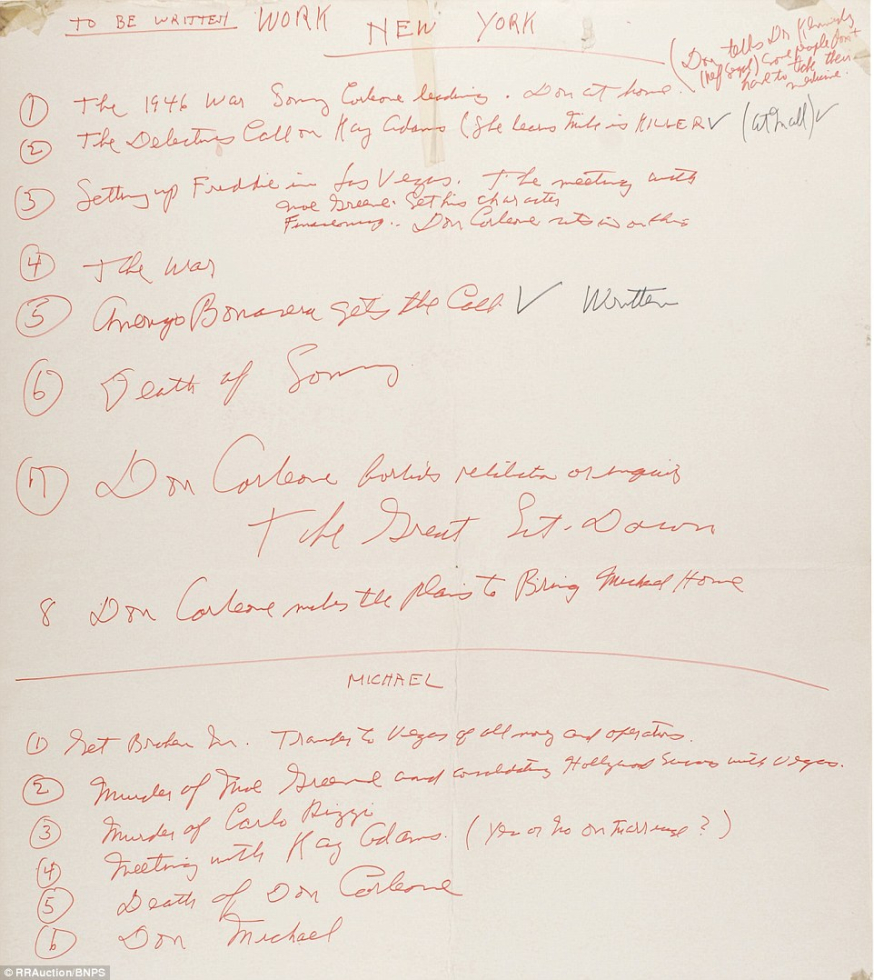 TO BE WRITTEN WORK NEW YORK
(Don tells Dr. Kennedy
(ref Segal) some people don't
have to take their
medicine.
① The 1946 War Sonny Corleone leading. Don at home.
② The Detectives Call on Kay Adams (She learns Mike is KILLER ✓ (at mall) ✓
③ Setting up Freddie in Las Vegas. The meeting with
Moe Greene. Set his character
Don Corleone sits in on this
④ The War
⑤ Amerigo Bonasera gets the Call ✓ Written
⑥ Death of Sonny
⑦ Don Corleone forbids retaliation or inquiry
The Great Sit-Down
8 Don Corleone makes the plans to Bring Michael Home
MICHAEL
① Get Broken In. Transfer to Vegas of all money and operations.
② Murder of Moe Greene and consolidating Hollywood with Vegas.
③ Murder of Carlo Rizzi
④ Meeting with Kay Adams. (Yes or No on Marriage?)
⑤ Death of Don Corleone
⑥ Don Michael
© RRAuction/BNPS